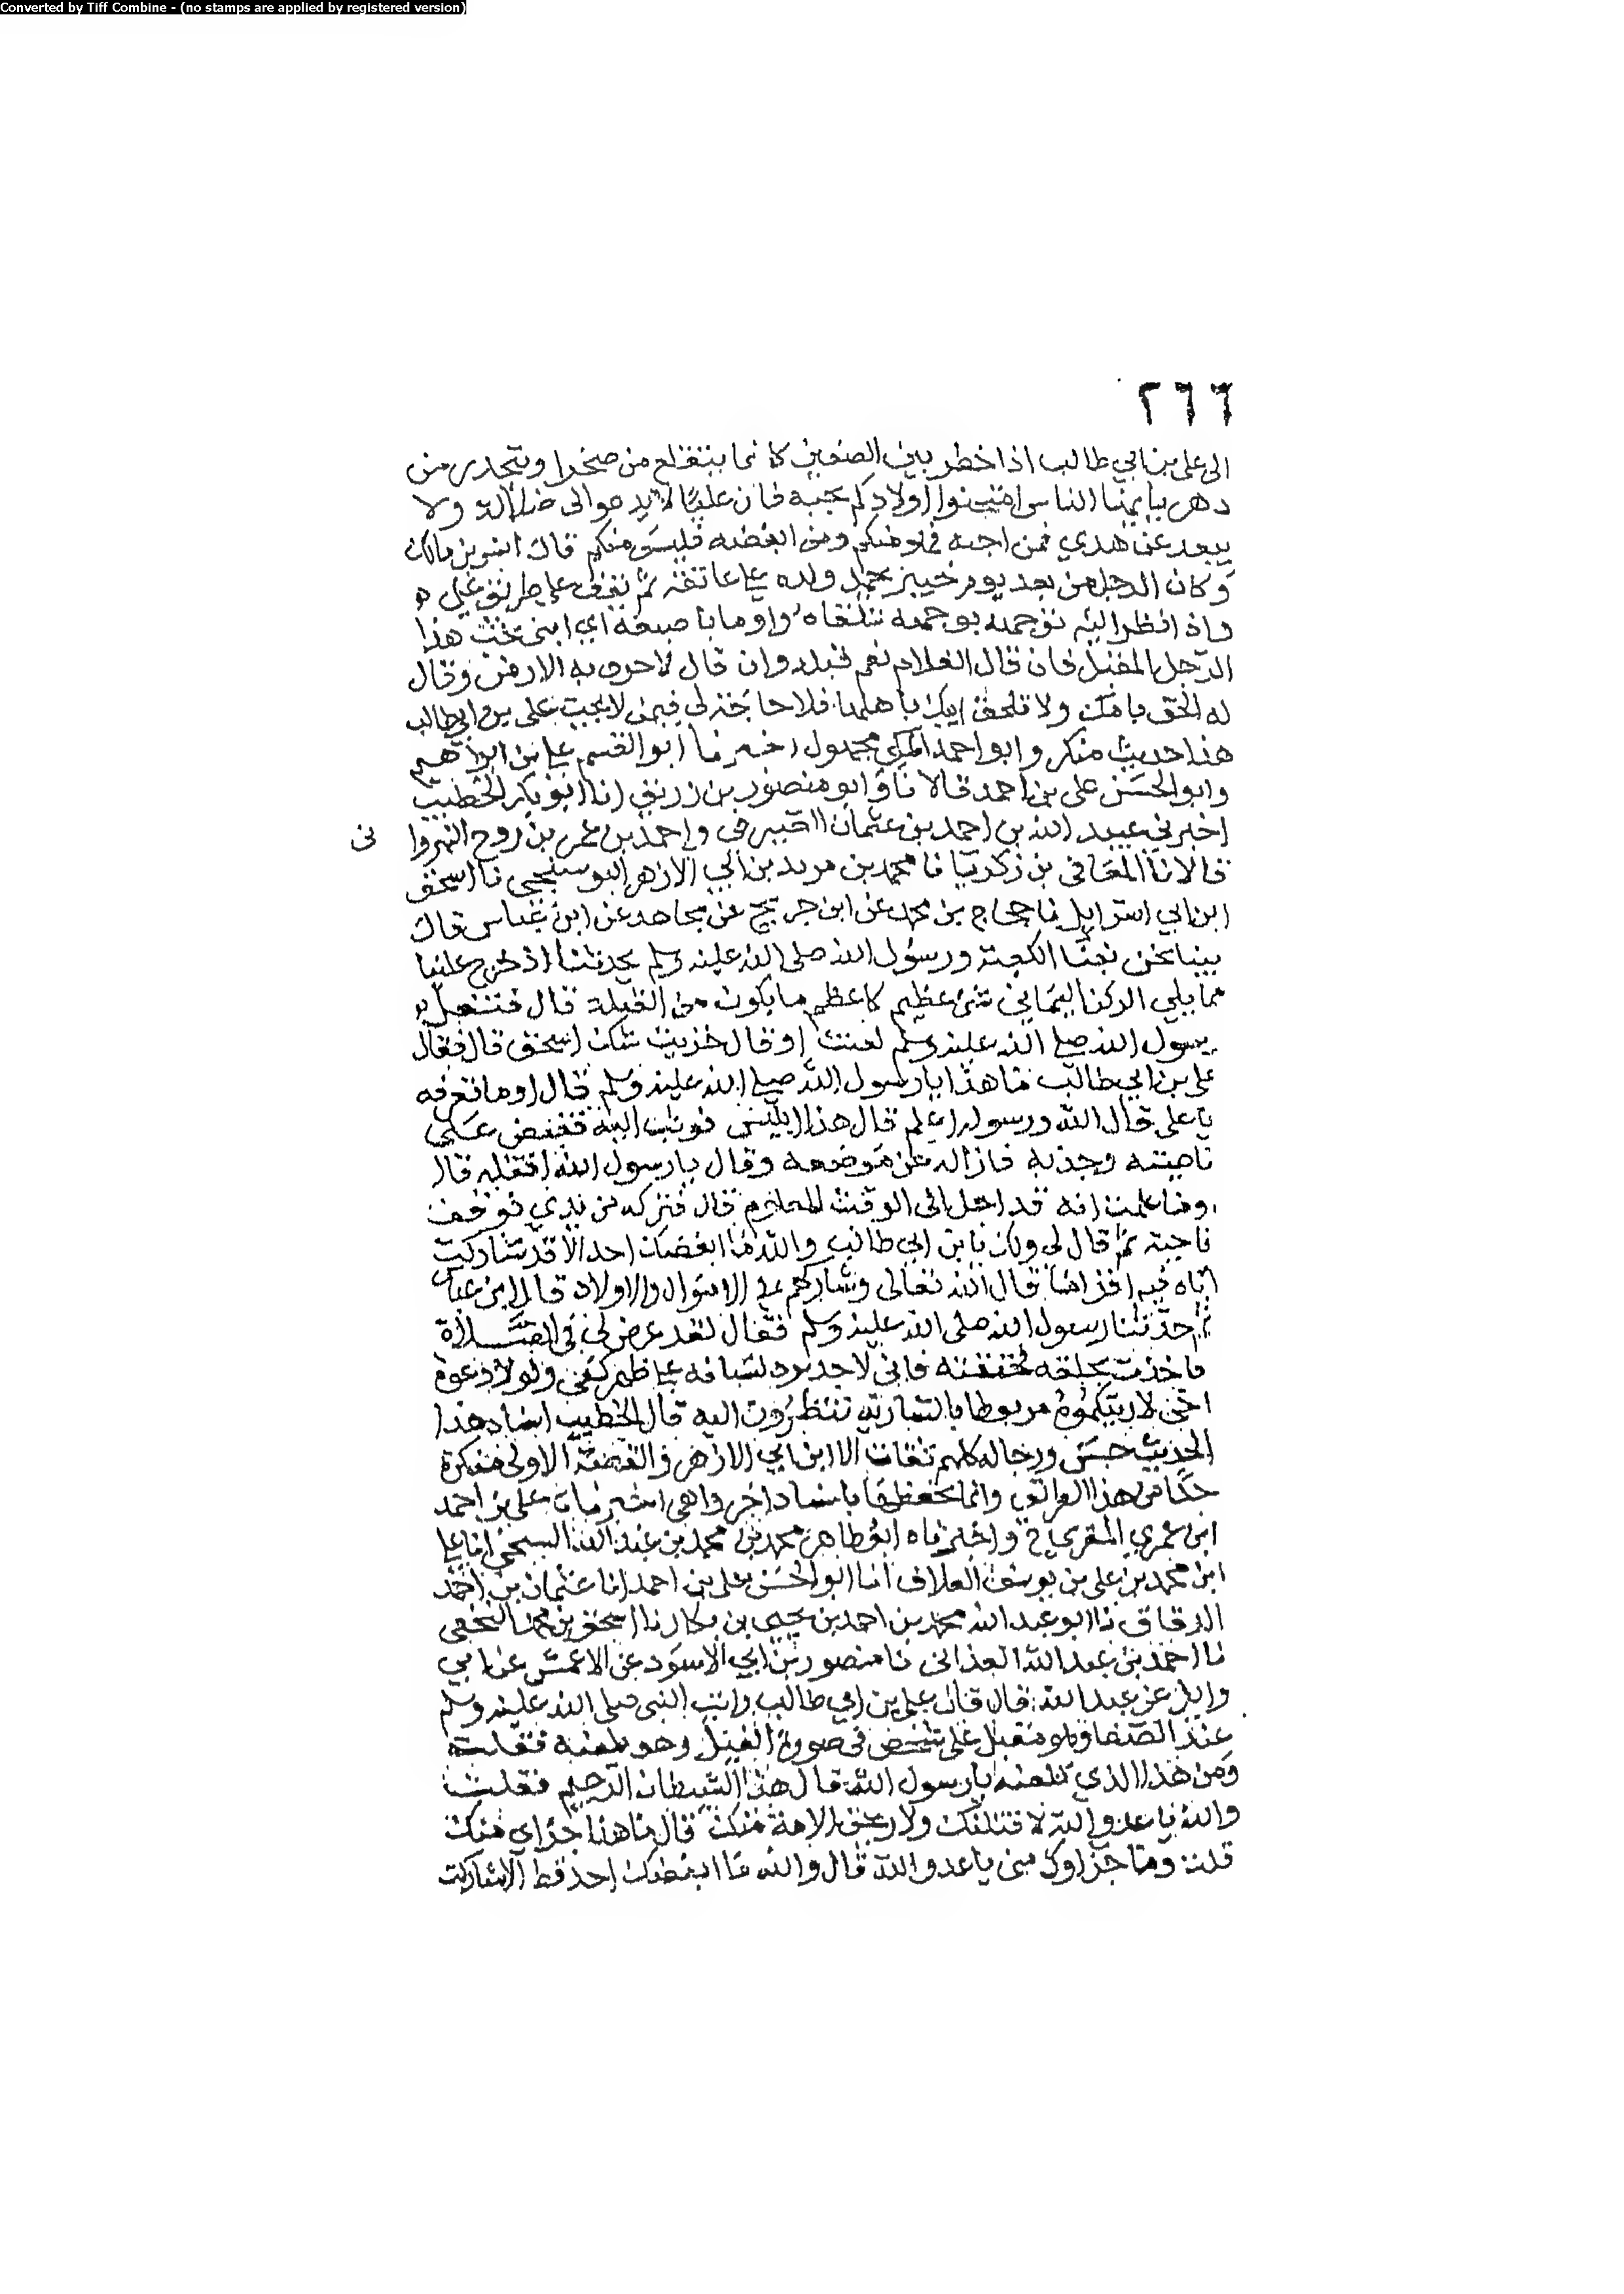 Converted by Tiff Combine - (no stamps are applied by registered version)
٢٦٦
الى على بن ابي طالب اذا خطر بين الصفين كانما يتقلع من صخر او يتحدر من
دهر يا ايها الناس امتحنوا اولادكم بحبه فان عليا لا يدعوا الى ضلالة ولا
يبعد عن هدي فمن احبه فهو منكم ومن ابغضه فليس منكم قال انس بن مالك
وكان الرجل من بعد يوم خيبر يحمل ولده على عاتقه ثم يقف على طريق علي
واذا نظر اليه توجهه بوجهه تلقاه واوما باصبعه اي ابني تحب هذا
الرجل المقبل فان قال الغلام نعم قبله وان قال لا حرف به الارض وقال
له الحق بامك ولا تلحق ابيك باهلها فلا حاجة لي فيمن لا يحب على بن ابي طالب
هذا حديث منكر وابو احمد المكي مجهول اخبرنا ابو القسم على بن ابراهيم
وابو الحسن على بن احمد قالا نا وابو منصور بن زريق انا ابو بكر الخطيب
اخبرني عبيد الله بن احمد بن عثمان الصيرفي واحمد بن عمر بن روح النهروا
نى
قالا نا المعافى بن زكريا نا محمد بن مزيد بن ابي الازهر البوسنجي نا اسحق
ابن ابي اسرايل نا حجاج بن محمد عن ابن جريج عن مجاهد عن ابن عباس قال
بينا نحن بفنا الكعبة ورسول الله صلى الله عليه وسلم يحدثنا اذ خرج علينا
مما يلي الركن اليماني شئ عظيم كاعظم ما يكون من الفيلة قال فتفل
رسول الله صلى الله عليه وسلم لعنت او قال خزيت شك اسحق قال فقال
على بن ابي طالب ما هذا يا رسول الله صلى الله عليه وسلم قال اوما تعرفه
يا على قال الله ورسوله اعلم قال هذا ابليس فوثب اليه فقبض على
ناصيته وجذبه فازاله عن موضعه وقال يا رسول الله اقتله قال
اوما علمت انه قد اجل الى الوقت المعلوم قال فتركه من يدي فوقف
ناحية ثم قال لى ولك يا بن ابي طالب والله ما ابغضك احد الا قد شاركت
اباه فيه اقرا ما قال الله تعالى وشاركهم في الاموال والاولاد قال ابن عباس
ثم حدثنا رسول الله صلى الله عليه وسلم فقال لقد عرض لي في الصلاة
فاخذت بحلقه فخنقته فاني لاجد برد لسانه على ظهر كفي ولولا دعوة
اخي لاريتكموه مربوطا بالسارية تنظرون اليه قال الخطيب اسناد هذا
الحديث حسن ورجاله كلهم ثقات الا ابن ابي الازهر والقصة الاولى منكرة
جدا من هذا الطريق وانما نحفظها باسناد اخر واهي اخبرناه على بن احمد
ابن عمر المقري ح واخبرناه ابو طاهر محمد بن محمد بن عبد الله السبخي انا على
ابن محمد بن على بن يوسف العلاف انا ابو الحسن على بن احمد انا عثمان بن احمد
الدقاق نا ابو عبد الله محمد بن احمد بن يحيى بن بكار نا اسحق بن محمد النخعي
نا احمد بن عبد الله الغداني نا منصور بن ابي الاسود عن الاعمش عن ابي
وايل عن عبد الله قال قال على بن ابي طالب رايت النبي صلى الله عليه وسلم
عند الصفا وهو مقبل على شخص في صورة الفيل وهو يلعنه فقلت
ومن هذا الذي تلعنه يا رسول الله قال هذا الشيطان الرجيم فقلت
والله يا عدو الله لاقتلنك ولاريحن الامة منك قال ما هذا جزاي منك
قلت وما جزاوك مني يا عدو الله قال والله ما ابغضك احد قط الا شاركت